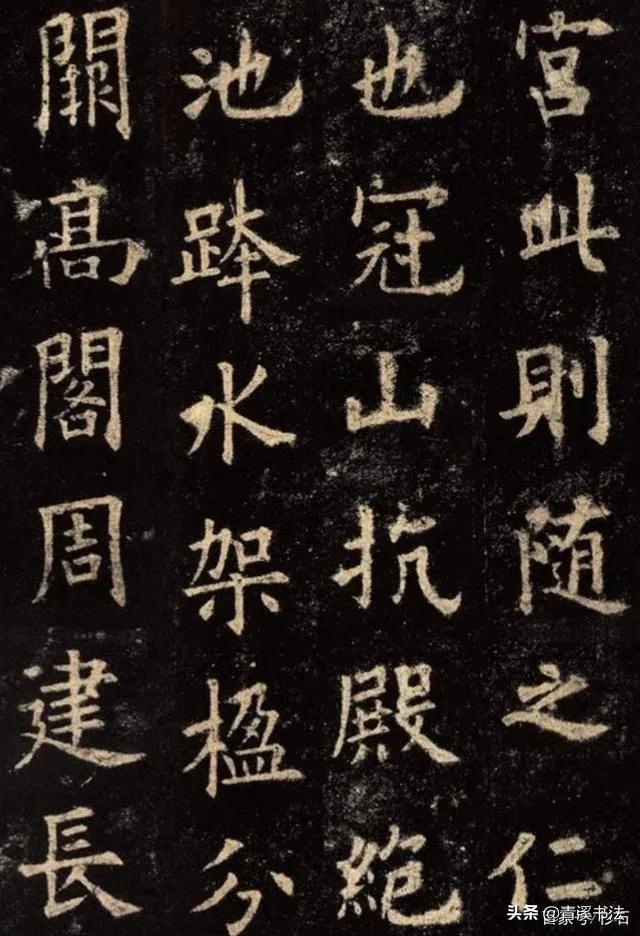 宮此則随之仁
也冠山抗殿絶
池跨水架楹分
闕髙閣周建長
头条 @青溪书法